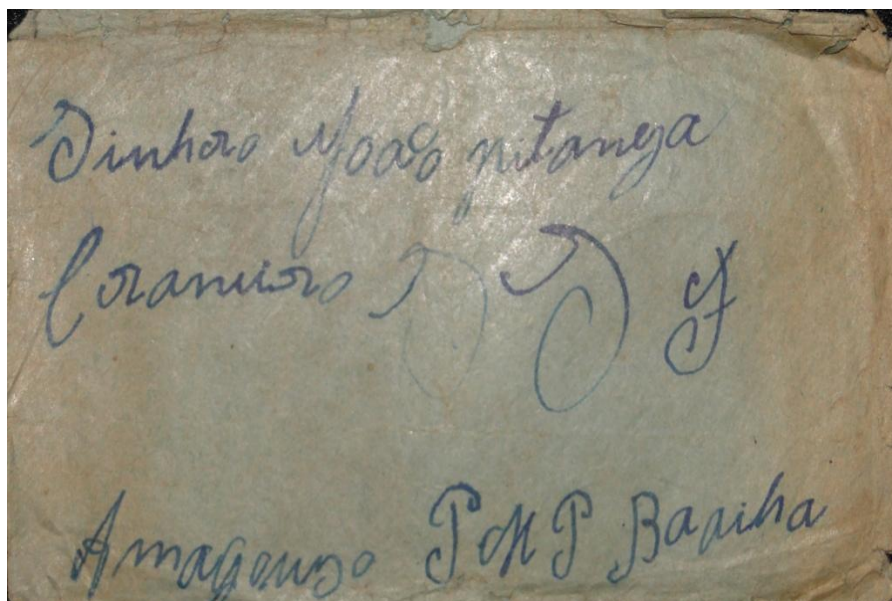 Dinhoro João pitanga
Coraneiro D D J
Amagouzo P M P Baaiha